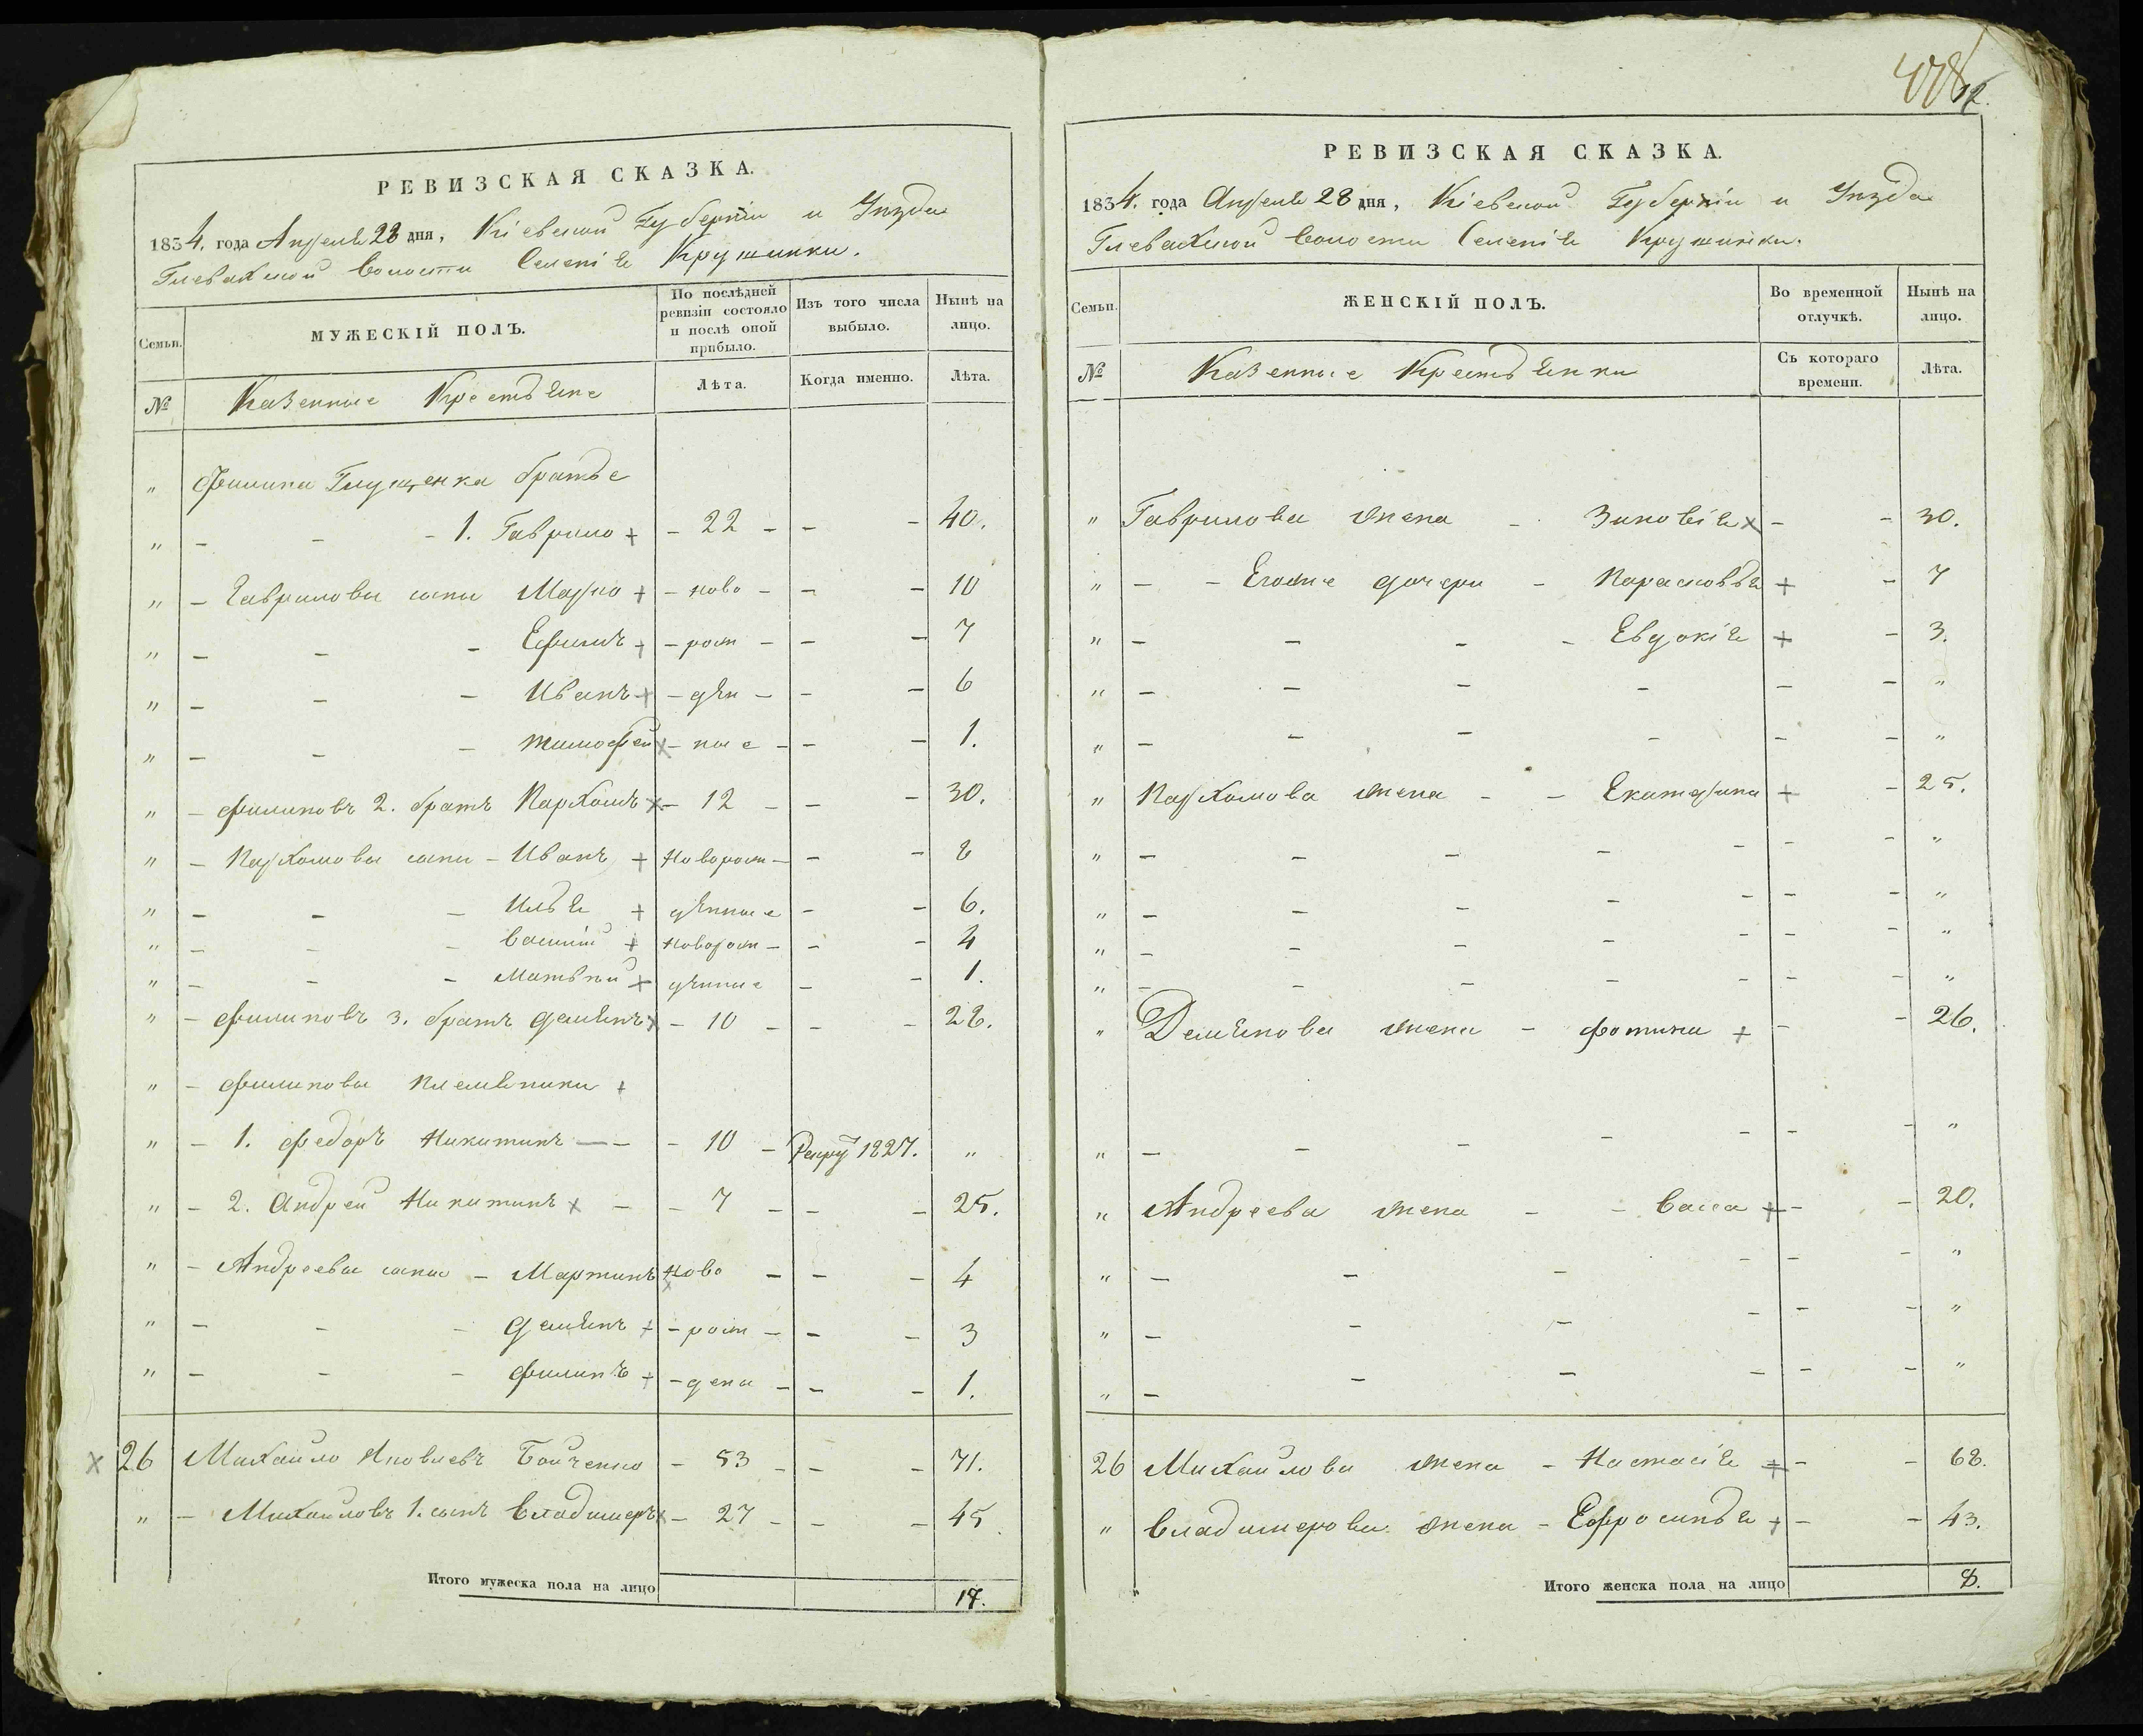 РЕВИЗСКАЯ СКАЗКА.
1834. года Апреля 28 дня, Кіевской Губерніи и Уѣзда
Глевахской Волости Селенія Кружинки.
Семьи.
МУЖЕСКІЙ ПОЛЪ.
По послѣдней ревизіи состояло и послѣ оной прибыло.
Изъ того числа выбыло.
Нынѣ на лицо.
№
Казенные Крестьяне
Лѣта.
Когда именно.
Лѣта.
" Филипа Глущенка братье
" - - - 1. Гаврило + - 22 - - - 40.
" - Гавриловы сыны Марко + - ново - - - 10
" - - - Ефимъ + - рож - - - 7
" - - - Иванъ + - дѣн - - - 6
" - - - Тимофей х - ные - - - 1.
" - Филиповъ 2. братъ Пархомъ х - 12 - - - 30.
" - Пархомовы сыны - Иванъ + Новорож - - - 8
" - - - Илья + дѣнные - - 6.
" - - - Василій + Новорож - - - 4
" - - - Матвѣй + дѣнные - - 1.
" - Филиповъ 3. братъ Демянъ х - 10 - - - 28.
" - Филиповы племяники +
" - 1. Федоръ Никитинъ — - - 10 - Рекру 1827. "
" - 2. Андрей Никитинъ х - - 7 - - - 25.
" - Андреевы сыны - Мартинъ х Ново - - - 4
" - - - Демянъ + - рож - - - 3
" - - - Филипъ + - дены - - - 1.
х 26 Михайло Яковлевъ Бойченко - 53 - - - 71.
" - Михайловъ 1. сынъ Владимеръ х - 27 - - - 45
Итого мужеска пола на лицо 17.
478
12.
РЕВИЗСКАЯ СКАЗКА.
1834. года Апреля 28 дня, Кіевской Губерніи и Уѣзда
Глевахской Волости Селенія Кружинки.
Семьи.
ЖЕНСКІЙ ПОЛЪ.
Во временной отлучкѣ.
Нынѣ на лицо.
№
Казенные Крестьянки
Съ котораго времени.
Лѣта.
" Гаврилова жена - Зиновія х - - 30.
" - - Егоже дочери - Парасковья + - 7
" - - - - Евдокія + - 3.
" - - - - - - "
" - - - - - - "
" Пархомова жена - - Екатерина + - 25.
" - - - - - - - "
" - - - - - - - "
" - - - - - - - "
" - - - - - - - "
" Демянова жена - Фотина + - - 26.
" - - - - - - - "
" Андреева жена - - Васса + - - 20.
" - - - - - - "
" - - - - - - "
" - - - - - - "
26 Михайлова жена - Настасія + - - 68.
" Владимерова жена - Ефросинья + - - 43.
Итого женска пола на лицо 8.